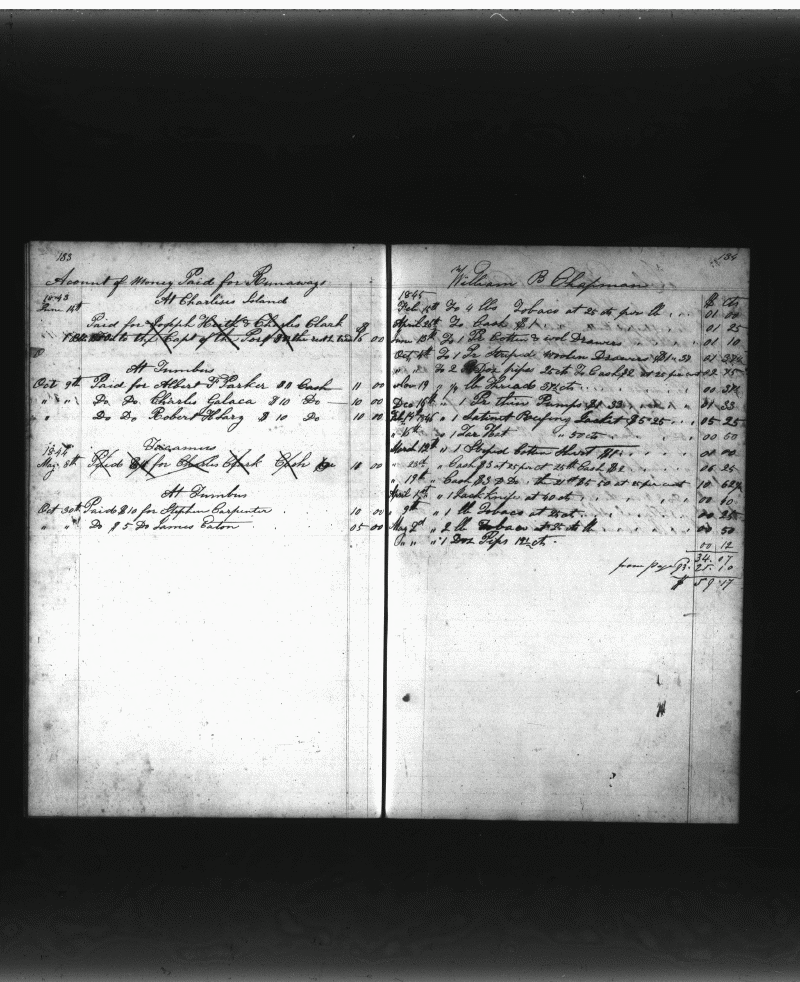 183
Acount of Money Paid for Runaways
1843 At Charlises Island
Paid for Joseph Keith & Charles Clark $
to the Capt of the Port 16 00
At Tumbus
Oct 9th Paid for Albert F Parker Cash 11 00
" " Do Do Charles Galaca $ 10 Do 10 00
" Do Do Robert H Larg $ 10 Do 10 00
1844 Tacamus
May 8th Paid for Charles Clark Cash 10 00
At Tumbus
Oct 30th Paid $10 for Stephen Carpenter 10 00
" " Do $ 5 Do James Eaton 05 00
184
William B Chapman
1845 $ Cts
Feb 15th To 4 lbs Tobaco at 25 cts per lb 01 00
April 25th To Cash $1 01 25
To 1 Pr Cotton & wol Drawers 01 10
Oct 4th To 1 Pr Striped Woolen Drawers $1.37 01 37½
" 2 To 2 Doz pipes 25 cts To Cash $2 at 25 per cent 02 75
Nov 19 " ¾ lb Thread 37½ cts 00 37½
Dec 15th " 1 Pr thin Pumps $1 33 01 33
Feb 14th 1846 " 1 Satinet Reefing Jacket $5 25 05 25
" 16th " 1 Tar Hat " 50 cts 00 50
March 12th " 1 Striped Cotton Shirt $1
" 25th " Cash $5 at 25 pr ct 25th Cash $2 06 25
" 19th " Cash $3 Do the 21st $5 50 at 25 per cent 10 62½
April 1st " 1 Jack Knife at 40 cts 00 40
" 9th " 1 lb Tobaco at 25 ct 00 25
May 2d " 2 lb Tobaco at 25 cts lb 00 50
" " " 1 Doz Pips 12½ cts 00 12
34.07
from page 93. 25.10
$ 59 17